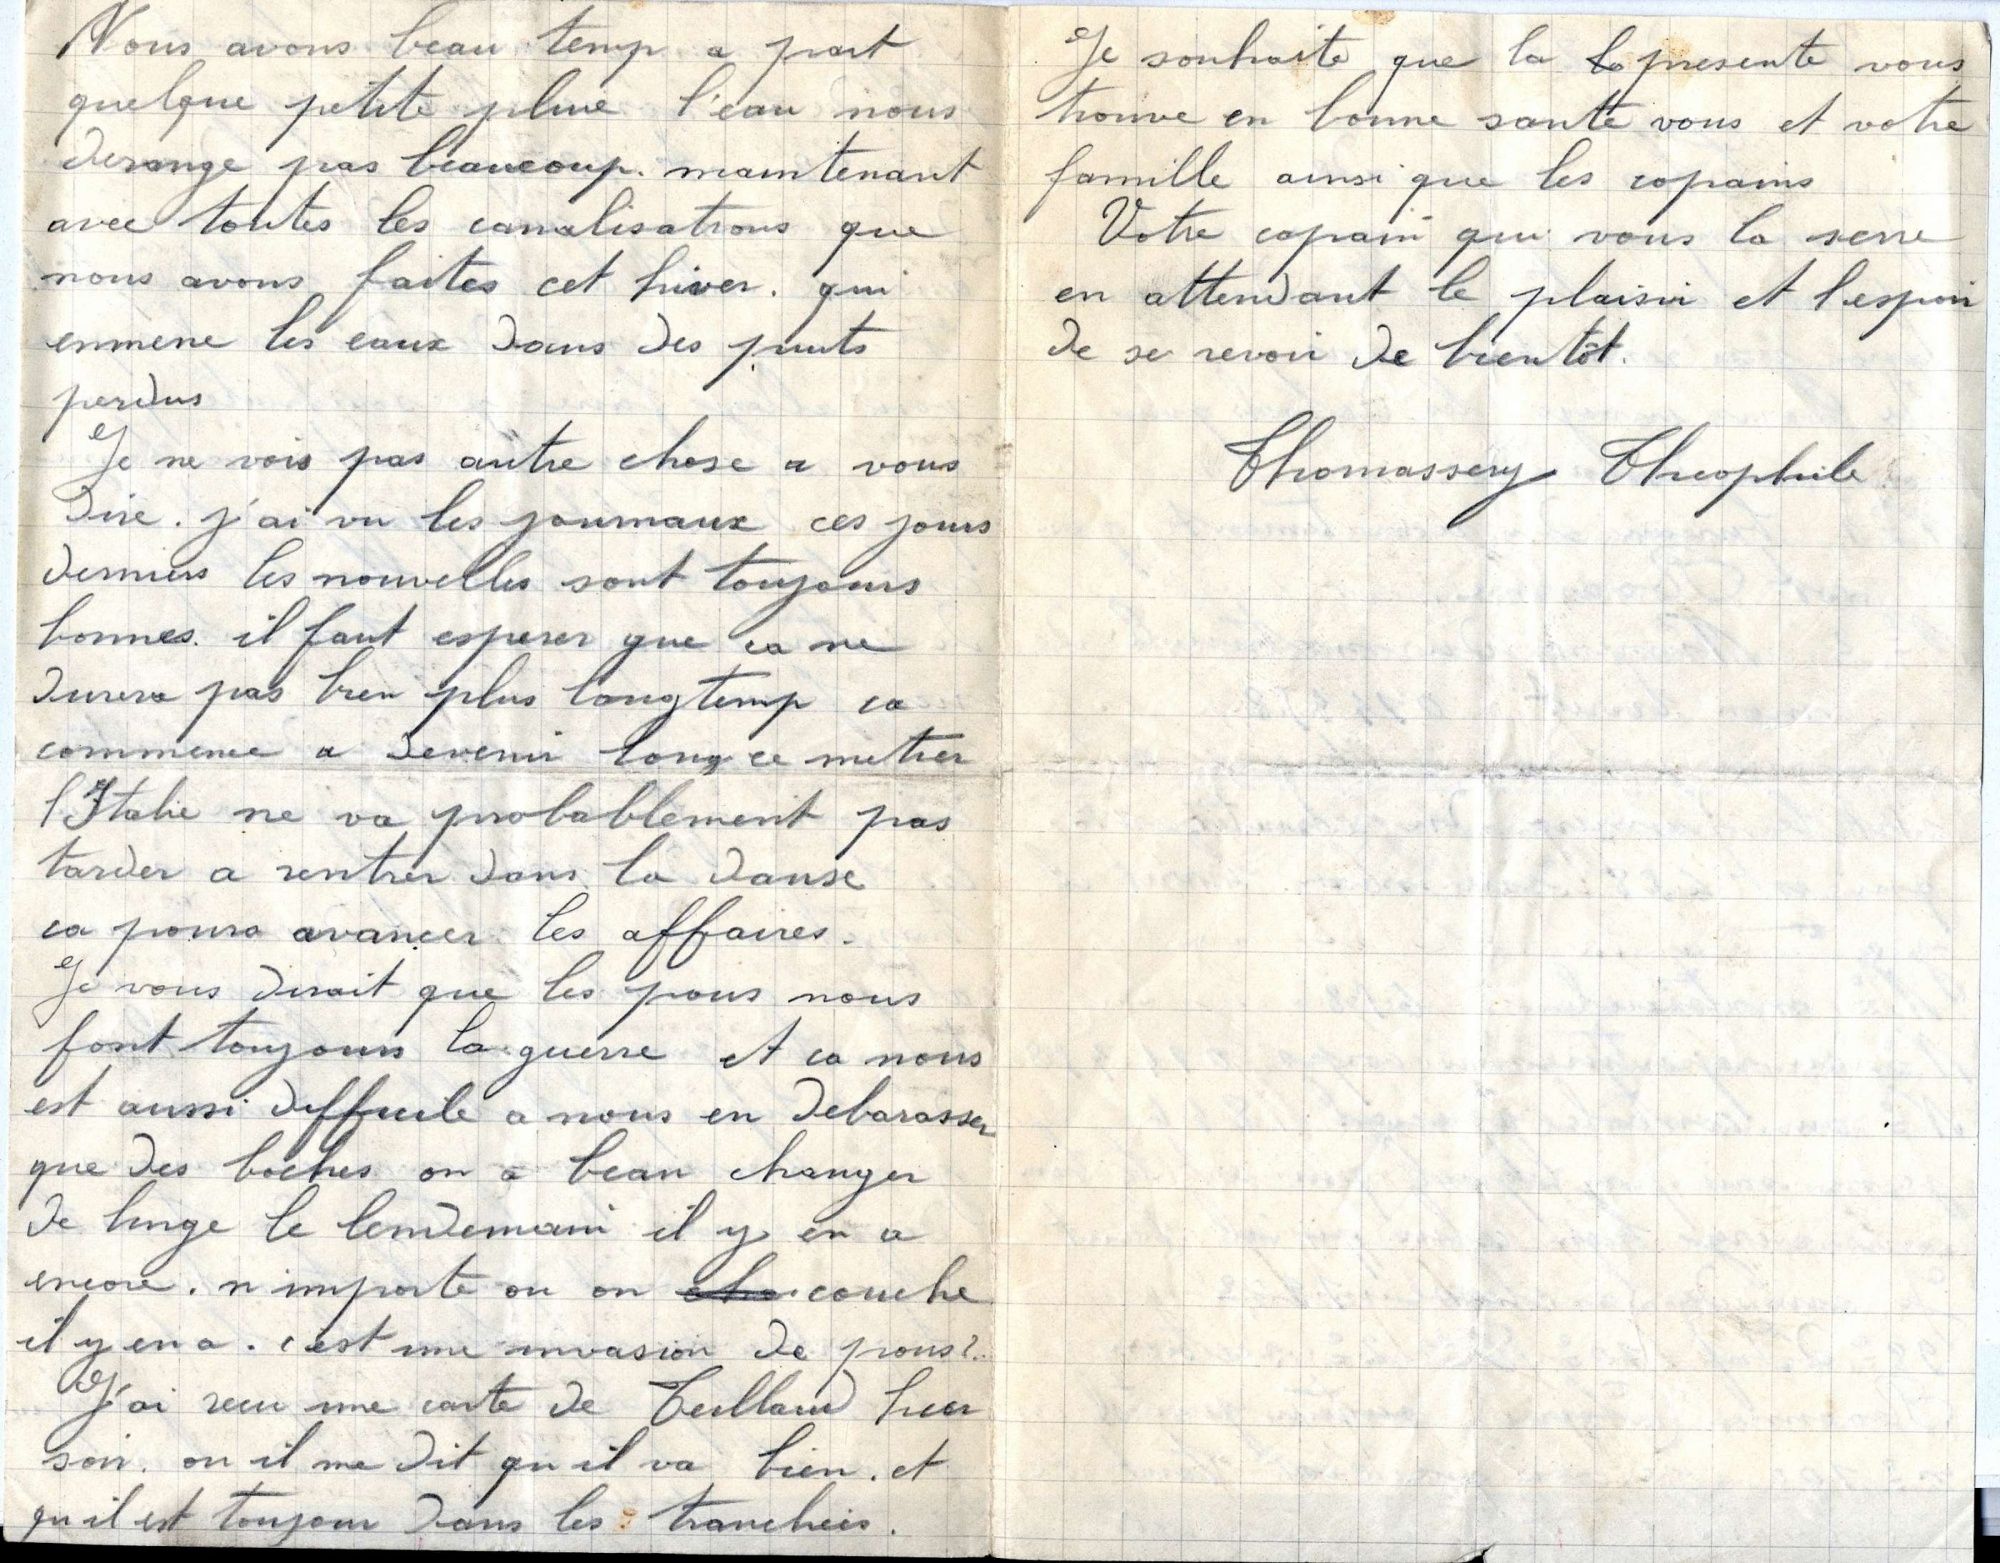 Nous avons beau temp a part
quelque petite pluie l'eau nous
derange pas beaucoup. maintenant
avec toutes les canalisations que
nous avons faites cet hiver. qui
enmene les eaux dans des puits
perdus
Je ne vois pas autre chose a vous
dire. j'ai vu les journaux ces jours
derniers les nouvelles sont toujours
bonnes. il faut esperer que ca ne
durera pas bien plus longtemp ca
commence a devenir long ce metier
l'Italie ne va probablement pas
tarder a rentrer dans la danse
ca poura avancer les affaires.
Je vous dirait que les pous nous
font toujours la guerre et ca nous
est aussi difficile a nous en debarasser
que des boches on a beau changer
de linge le lendemain il y en a
encore. n importe ou on couche
il y en a. c'est une invasion de pous?..
J'ai recu une carte de hier
soir. ou il me dit qu il va bien. et
qu il est toujour dans les tranchées.
Je souhaite que la presente vous
trouve en bonne santé vous et votre
famille ainsi que les copains
Votre copain qui vous la serre
en attendant le plaisir et l'espoir
de se revoir de bientôt.
Thomassery Theophile